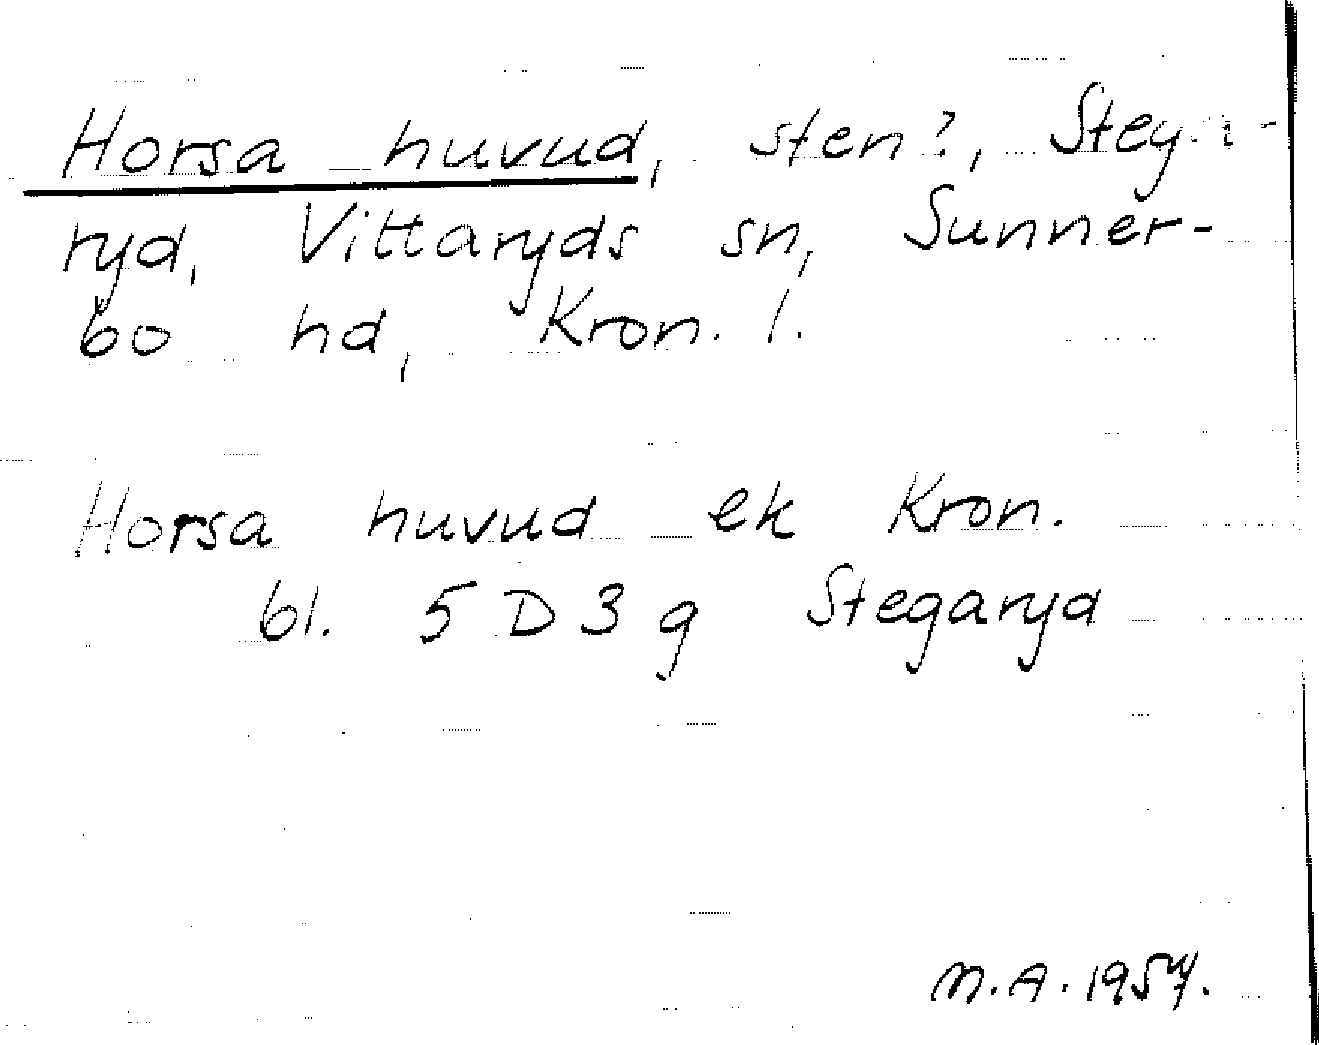 Horsa huvud, sten?, Stega-
ryd, Vittaryds sn, Sunner-
bo hd, Kron. l.
Horsa huvud ek Kron.
bl. 5 D 3 g Stegaryd
N.A. 1957.